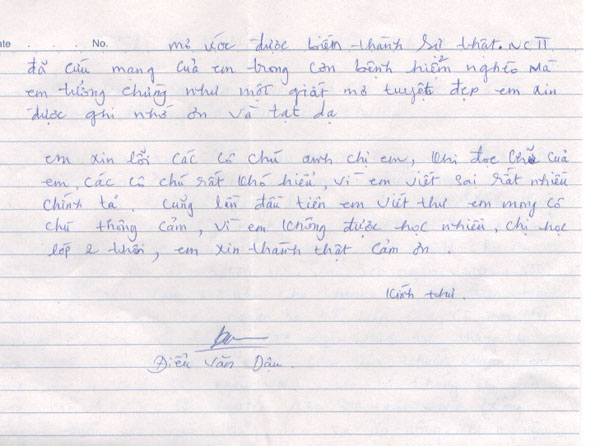 ate No. mơ ước được biến thành sự thật. NCTT
đã cứu mạng của em trong cơn bệnh hiểm nghèo mà
em tưởng chừng như một giất mơ tuyệt đẹp em xin
được ghi nhớ ơn và tạt dạ
em xin lỗi các cô chú anh chị em, khi đọc chữ của
em, các cô chú rất khó hiểu, vì em viết sai rất nhiều
chính tả. Cũng lần đầu tiên em viết thư em mong cô
chú thông cảm, vì em không được học nhiều, chị học
lớp 2 thôi, em xin thành thật cảm ơn.
Kính thư.
Điểu Văn Dậu